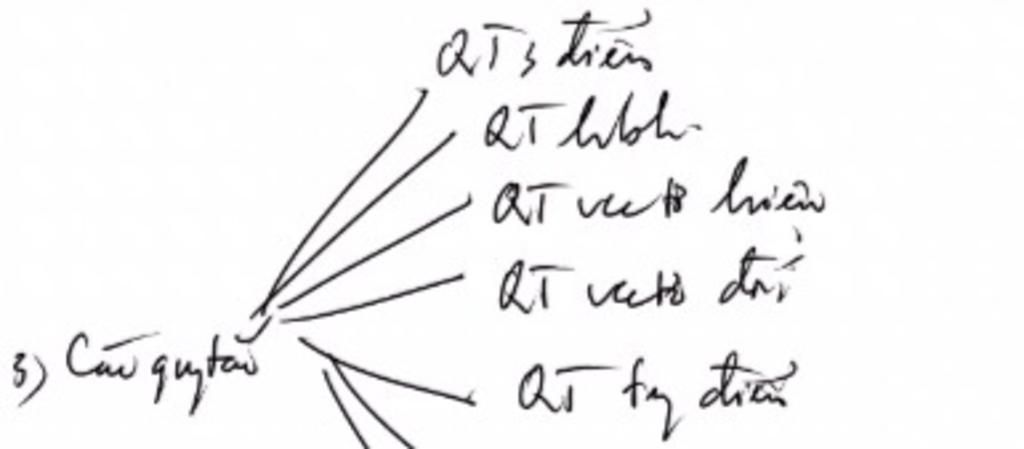 QT 3 điểm
QT hbh
QT vectơ hiệu
QT vectơ đối
QT tr điểm
3) Các quy tắc